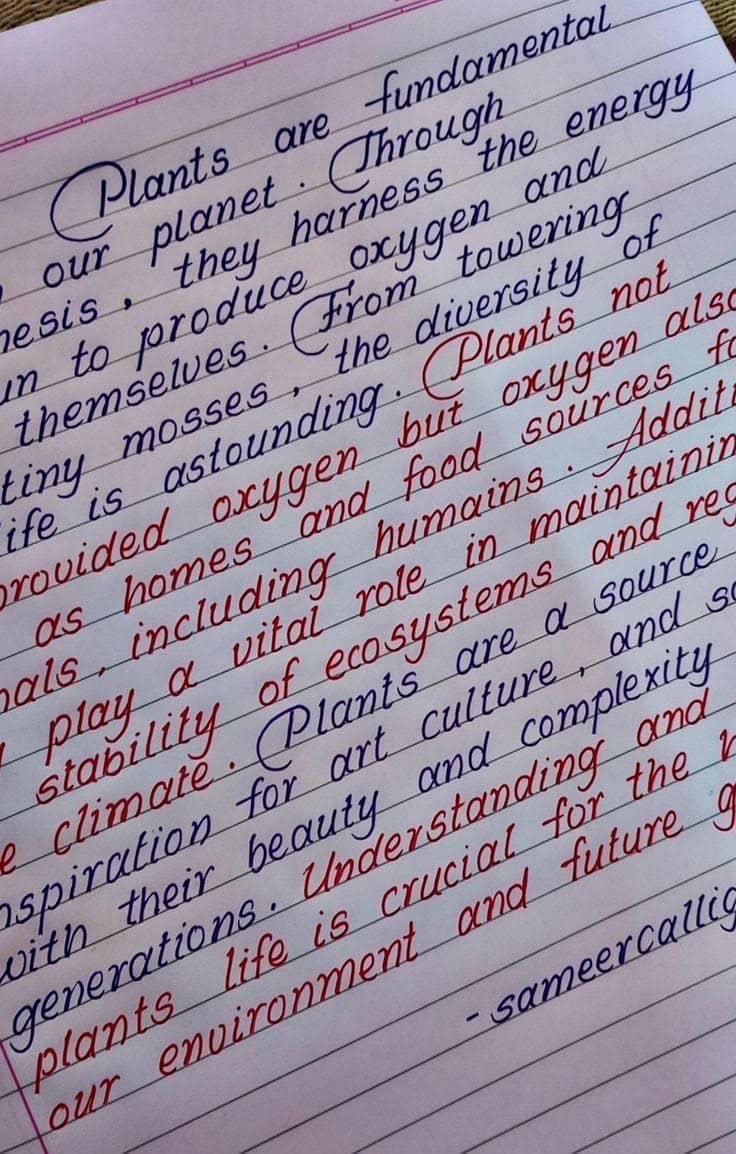 Plants are fundamental
our planet. Through
nesis, they harness the energy
un to produce oxygen and
themselves. From towering
tiny mosses, the diversity of
ife is astounding. Plants not
provided oxygen but oxygen also
as homes and food sources fo
als, including humains. Additi
play a vital role in maintainin
stability of ecosystems and reg
e climate. Plants are a source
nspiration for art culture, and so
with their beauty and complexity
generations. Understanding and
plants life is crucial for the
our environment and future g
- sameercallig